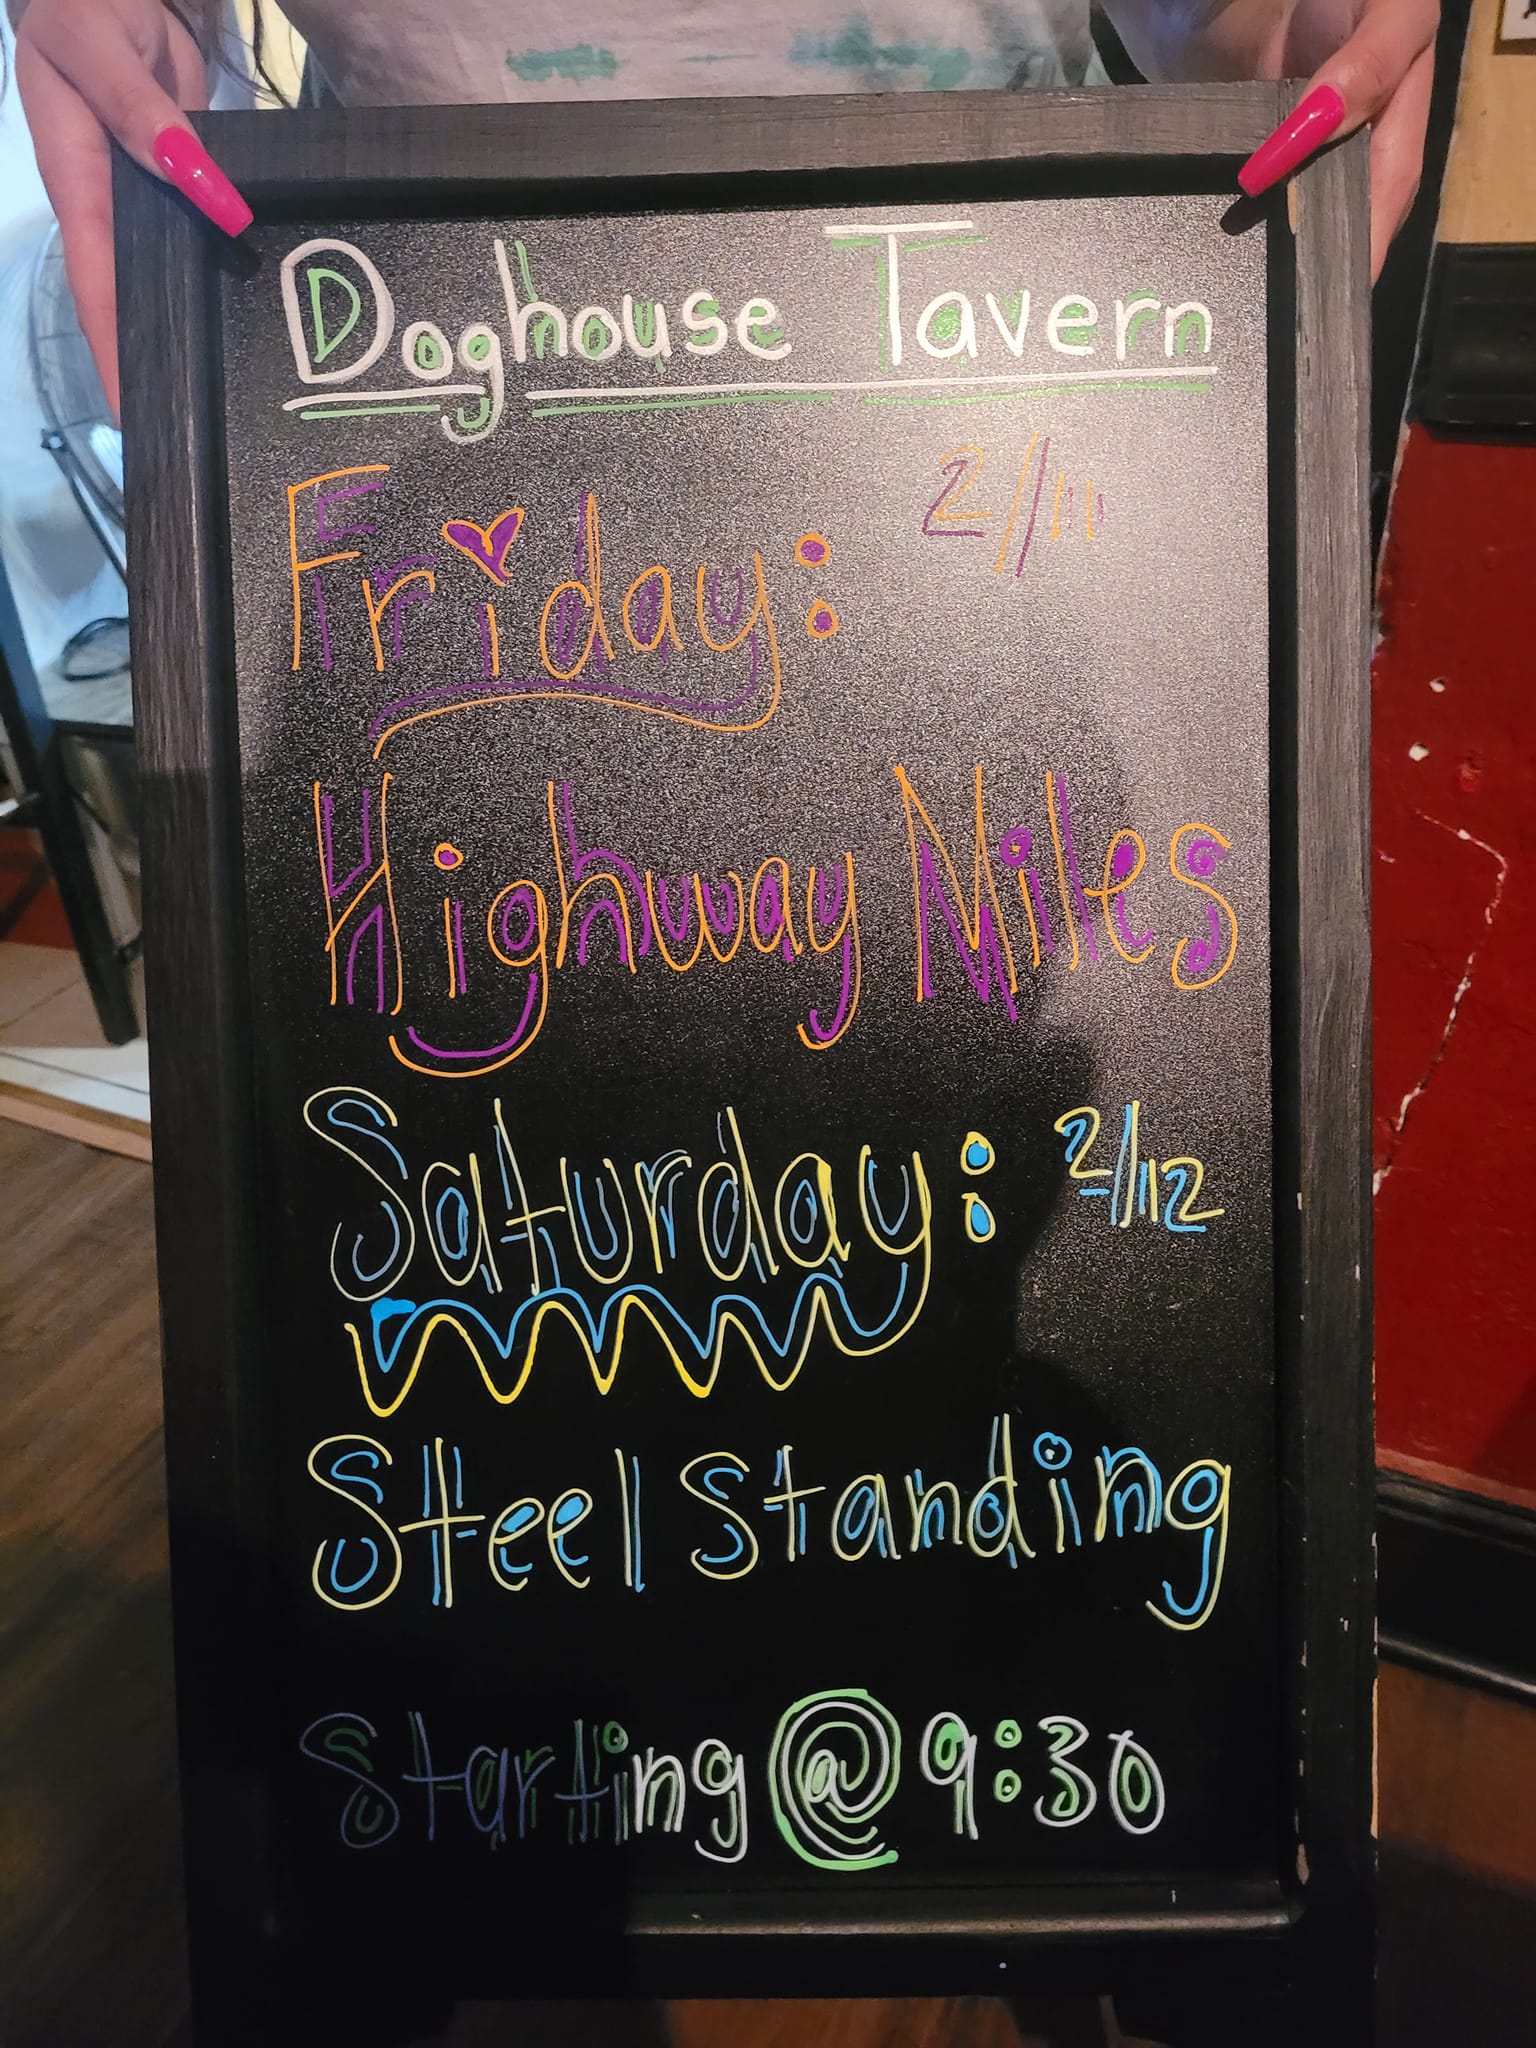 Doghouse Tavern
Friday: 2/11
Highway Miles
Saturday: 2/12
Steel Standing
Starting @ 9:30